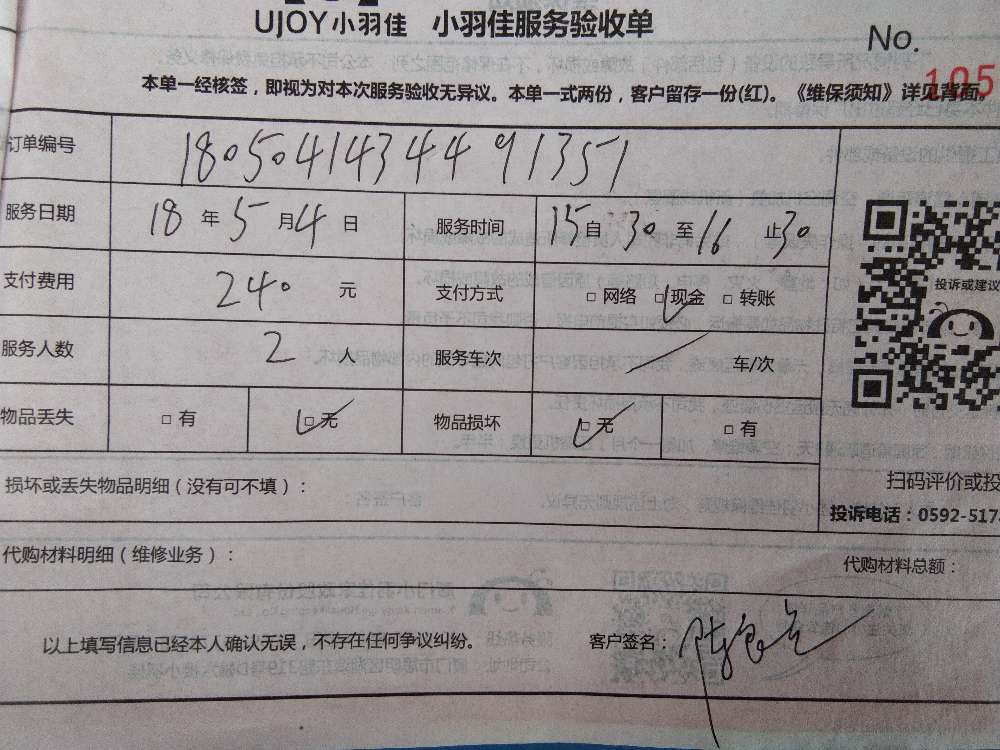 UJOY小羽佳 小羽佳服务验收单
No.
105
本单一经核签，即视为对本次服务验收无异议。本单一式两份，客户留存一份(红)。《维保须知》详见背面。
订单编号 180504143444 91351
服务日期 18 年 5 月 4 日 服务时间 15 自 30 至 16 止 30
支付费用 240 元 支付方式 □ 网络 □现金 □ 转账
投诉或建议
服务人数 2 人 服务车次 车/次
物品丢失 □ 有 □无 物品损坏 □无 □ 有
损坏或丢失物品明细（没有可不填）：
扫码评价或投
投诉电话：0592-517
代购材料明细（维修业务）：
代购材料总额：
以上填写信息已经本人确认无误，不存在任何争议纠纷。 客户签名：